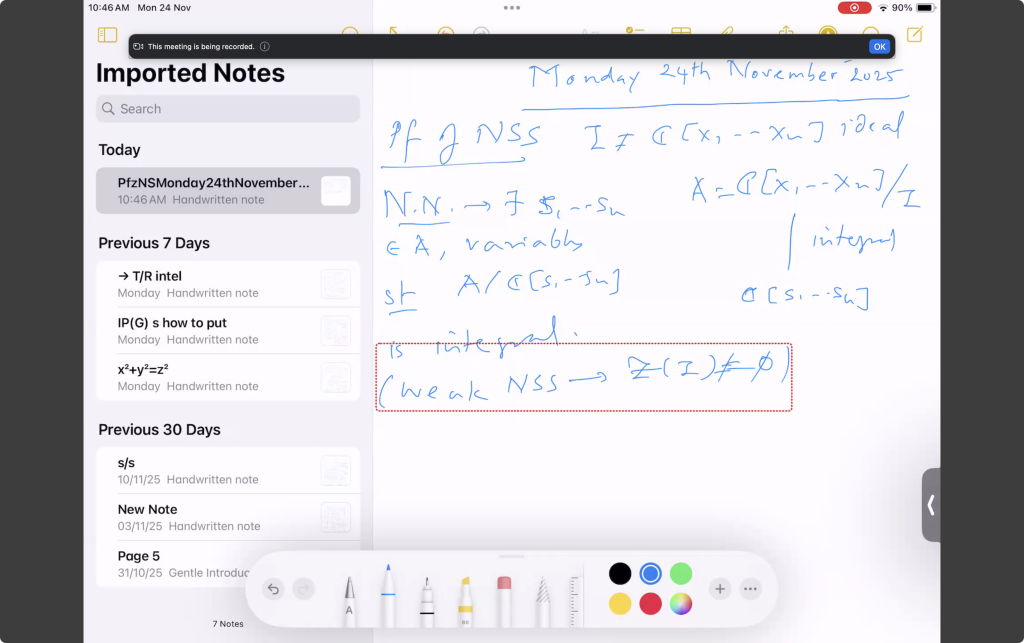 10:46 AM Mon 24 Nov
90%
This meeting is being recorded.
OK
Imported Notes
Search
Today
PfzNSMonday24thNovember...
10:46 AM Handwritten note
Previous 7 Days
→ T/R intel
Monday Handwritten note
IP(G) s how to put
Monday Handwritten note
x²+y²=z²
Monday Handwritten note
Previous 30 Days
s/s
10/11/25 Handwritten note
New Note
03/11/25 Handwritten note
Page 5
31/10/25 Gentle Introduc
7 Notes
Monday 24th November 2025
Pf of NSS I ≠ ℂ[x1 -- xn] ideal
A = ℂ[x1 -- xn]/I
N.N. → ∃ s1 -- sn
∈ A, variables
st A/ℂ[s1 -- sn]
is integral.
| integral
ℂ[s1 -- sn]
(weak NSS → Z(I) ≠ ∅)
A
80